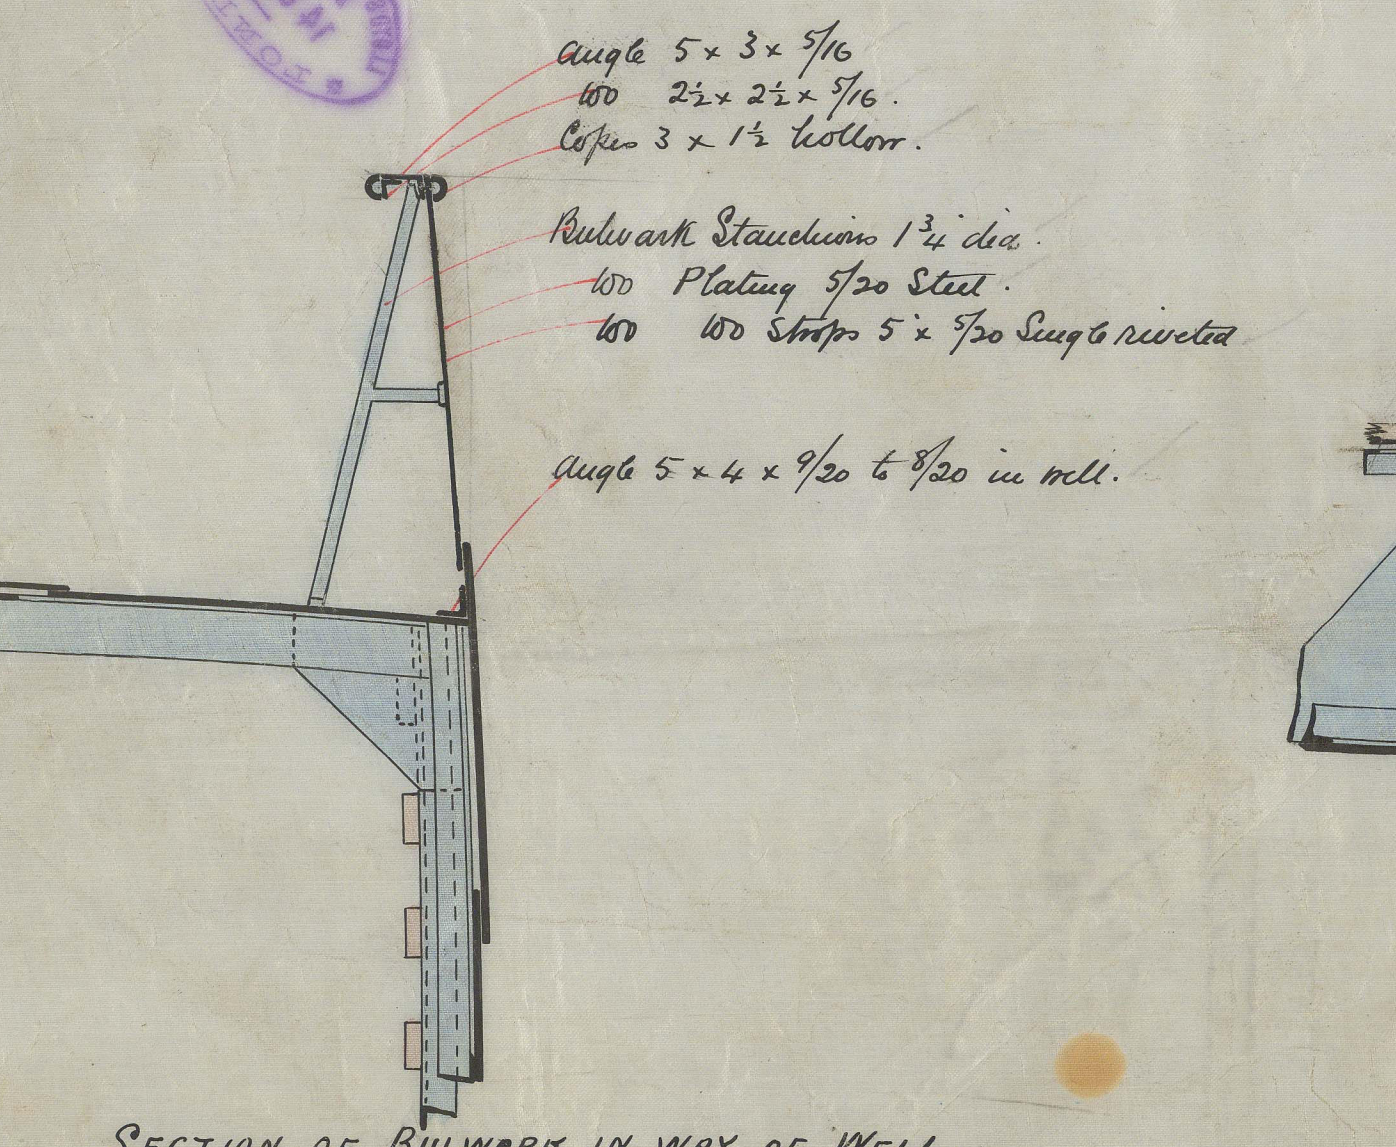 Angle 5 x 3 x 5/16
Do 2½ x 2½ x 5/16.
Copes 3 x 1½ hollow.
Bulwark Stanchions 1¾" dia.
Do Plating 5/20 Steel.
Do Do Straps 5" x 5/20 Single riveted
Angle 5 x 4 x 9/20 to 8/20 in well.
SECTION OF BULWARK IN WAY OF WELL